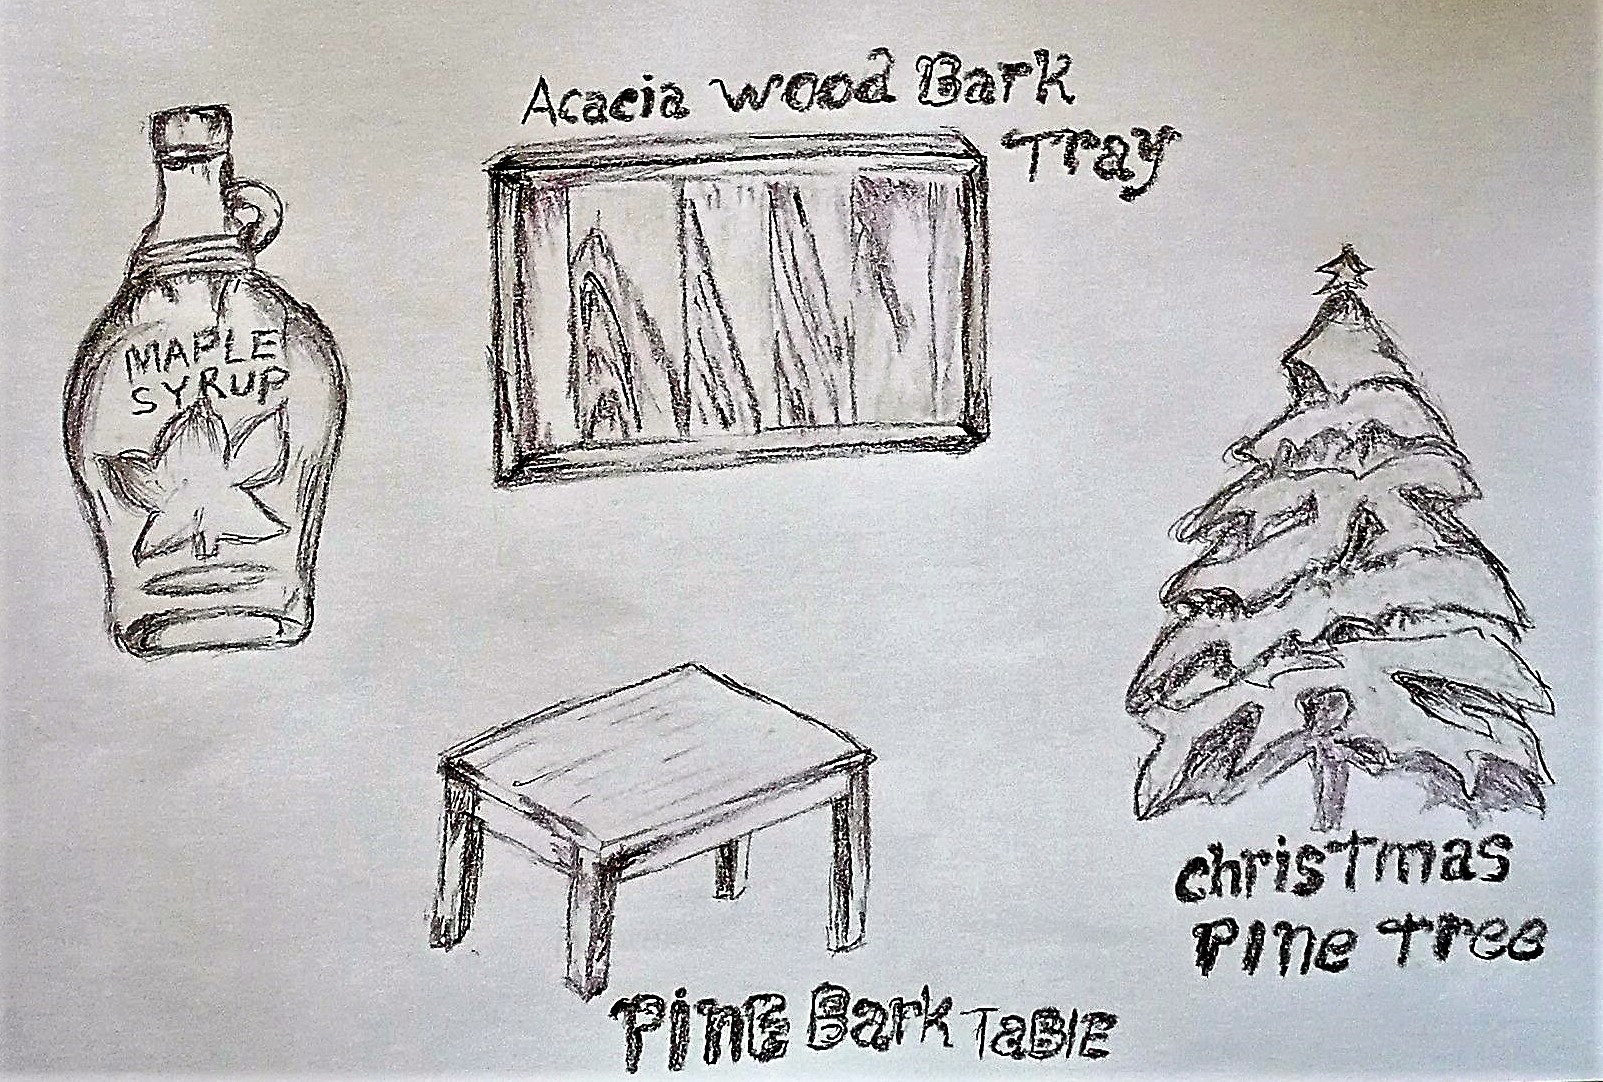 Acacia wood Bark
Tray
MAPLE
SYRUP
christmas
Pine Tree
Pine Bark TaBlE